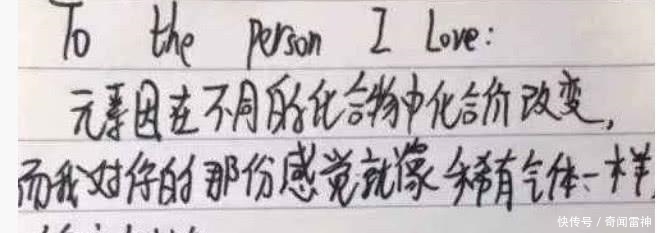 To the person I Love:
元素因在不同的化合物中化合价改变,
而我对你的那份感觉就像稀有气体一样
快传号/奇闻雷神